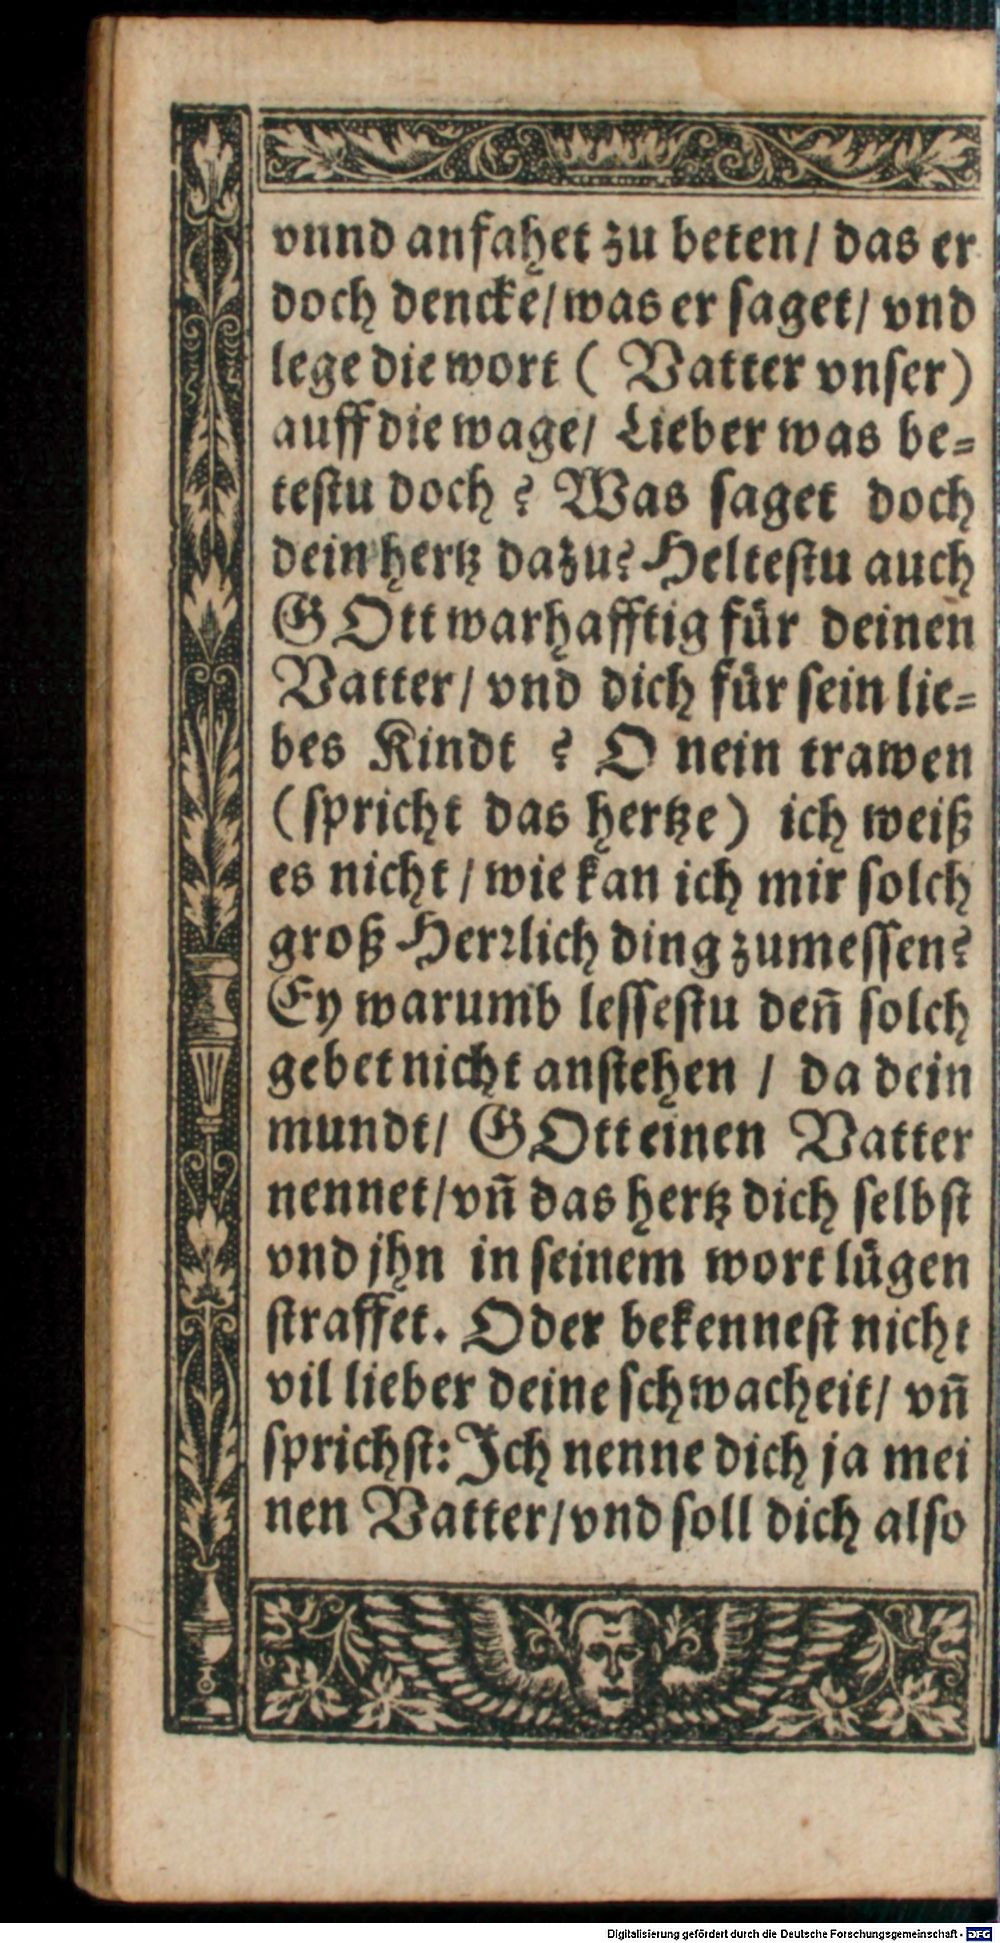 vnnd anfahet zu beten / das er
doch denckẽ / was er saget / vnd
lege die wort ( Vatter vnser )
auff die wage / Lieber was be⸗
testu doch ? Was saget doch
dein hertz dazu? Heltestu auch
GOtt warhafftig für deinen
Vatter / vnd dich für sein lie⸗
bes Kindt ? O nein trawen
(spricht das hertze) ich weiß
es nicht / wie kan ich mir solch
groß Herꝛlich ding zumessen?
Ey warumb lessestu den̄ solch
gebet nicht anstehen / da dein
mundt / GOtt einen Vatter
nennet / vn̄ das hertz dich selbst
vnd jhn in seinem wort lügen
straffet. Oder bekennest nicht
vil lieber deine schwacheit / vn̄
sprichst: Ich nenne dich ja mei
nen Vatter / vnd soll dich also
Digitalisierung gefördert durch die Deutsche Forschungsgemeinschaft - DFG